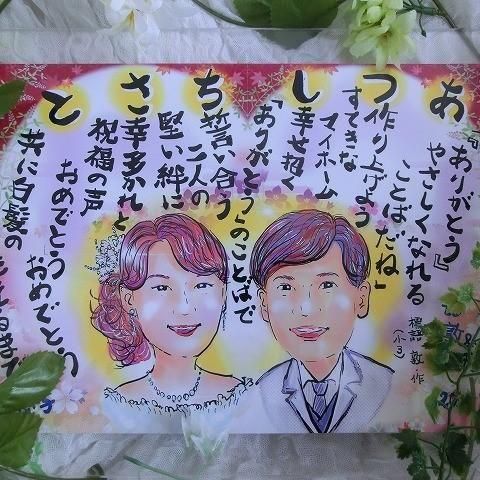 あ
『ありがとう』
やさしくなれる
ことばだね」
標語
敦・作
（小3）
つ
作り上げよう
すてきな
マイホーム
し
幸せ招く
「ありがとう」のことばで
ち
誓い合う
二人の
堅い絆に
さ
幸多かれと
祝福の声
おめでとう おめでとう
と
共に白髪の